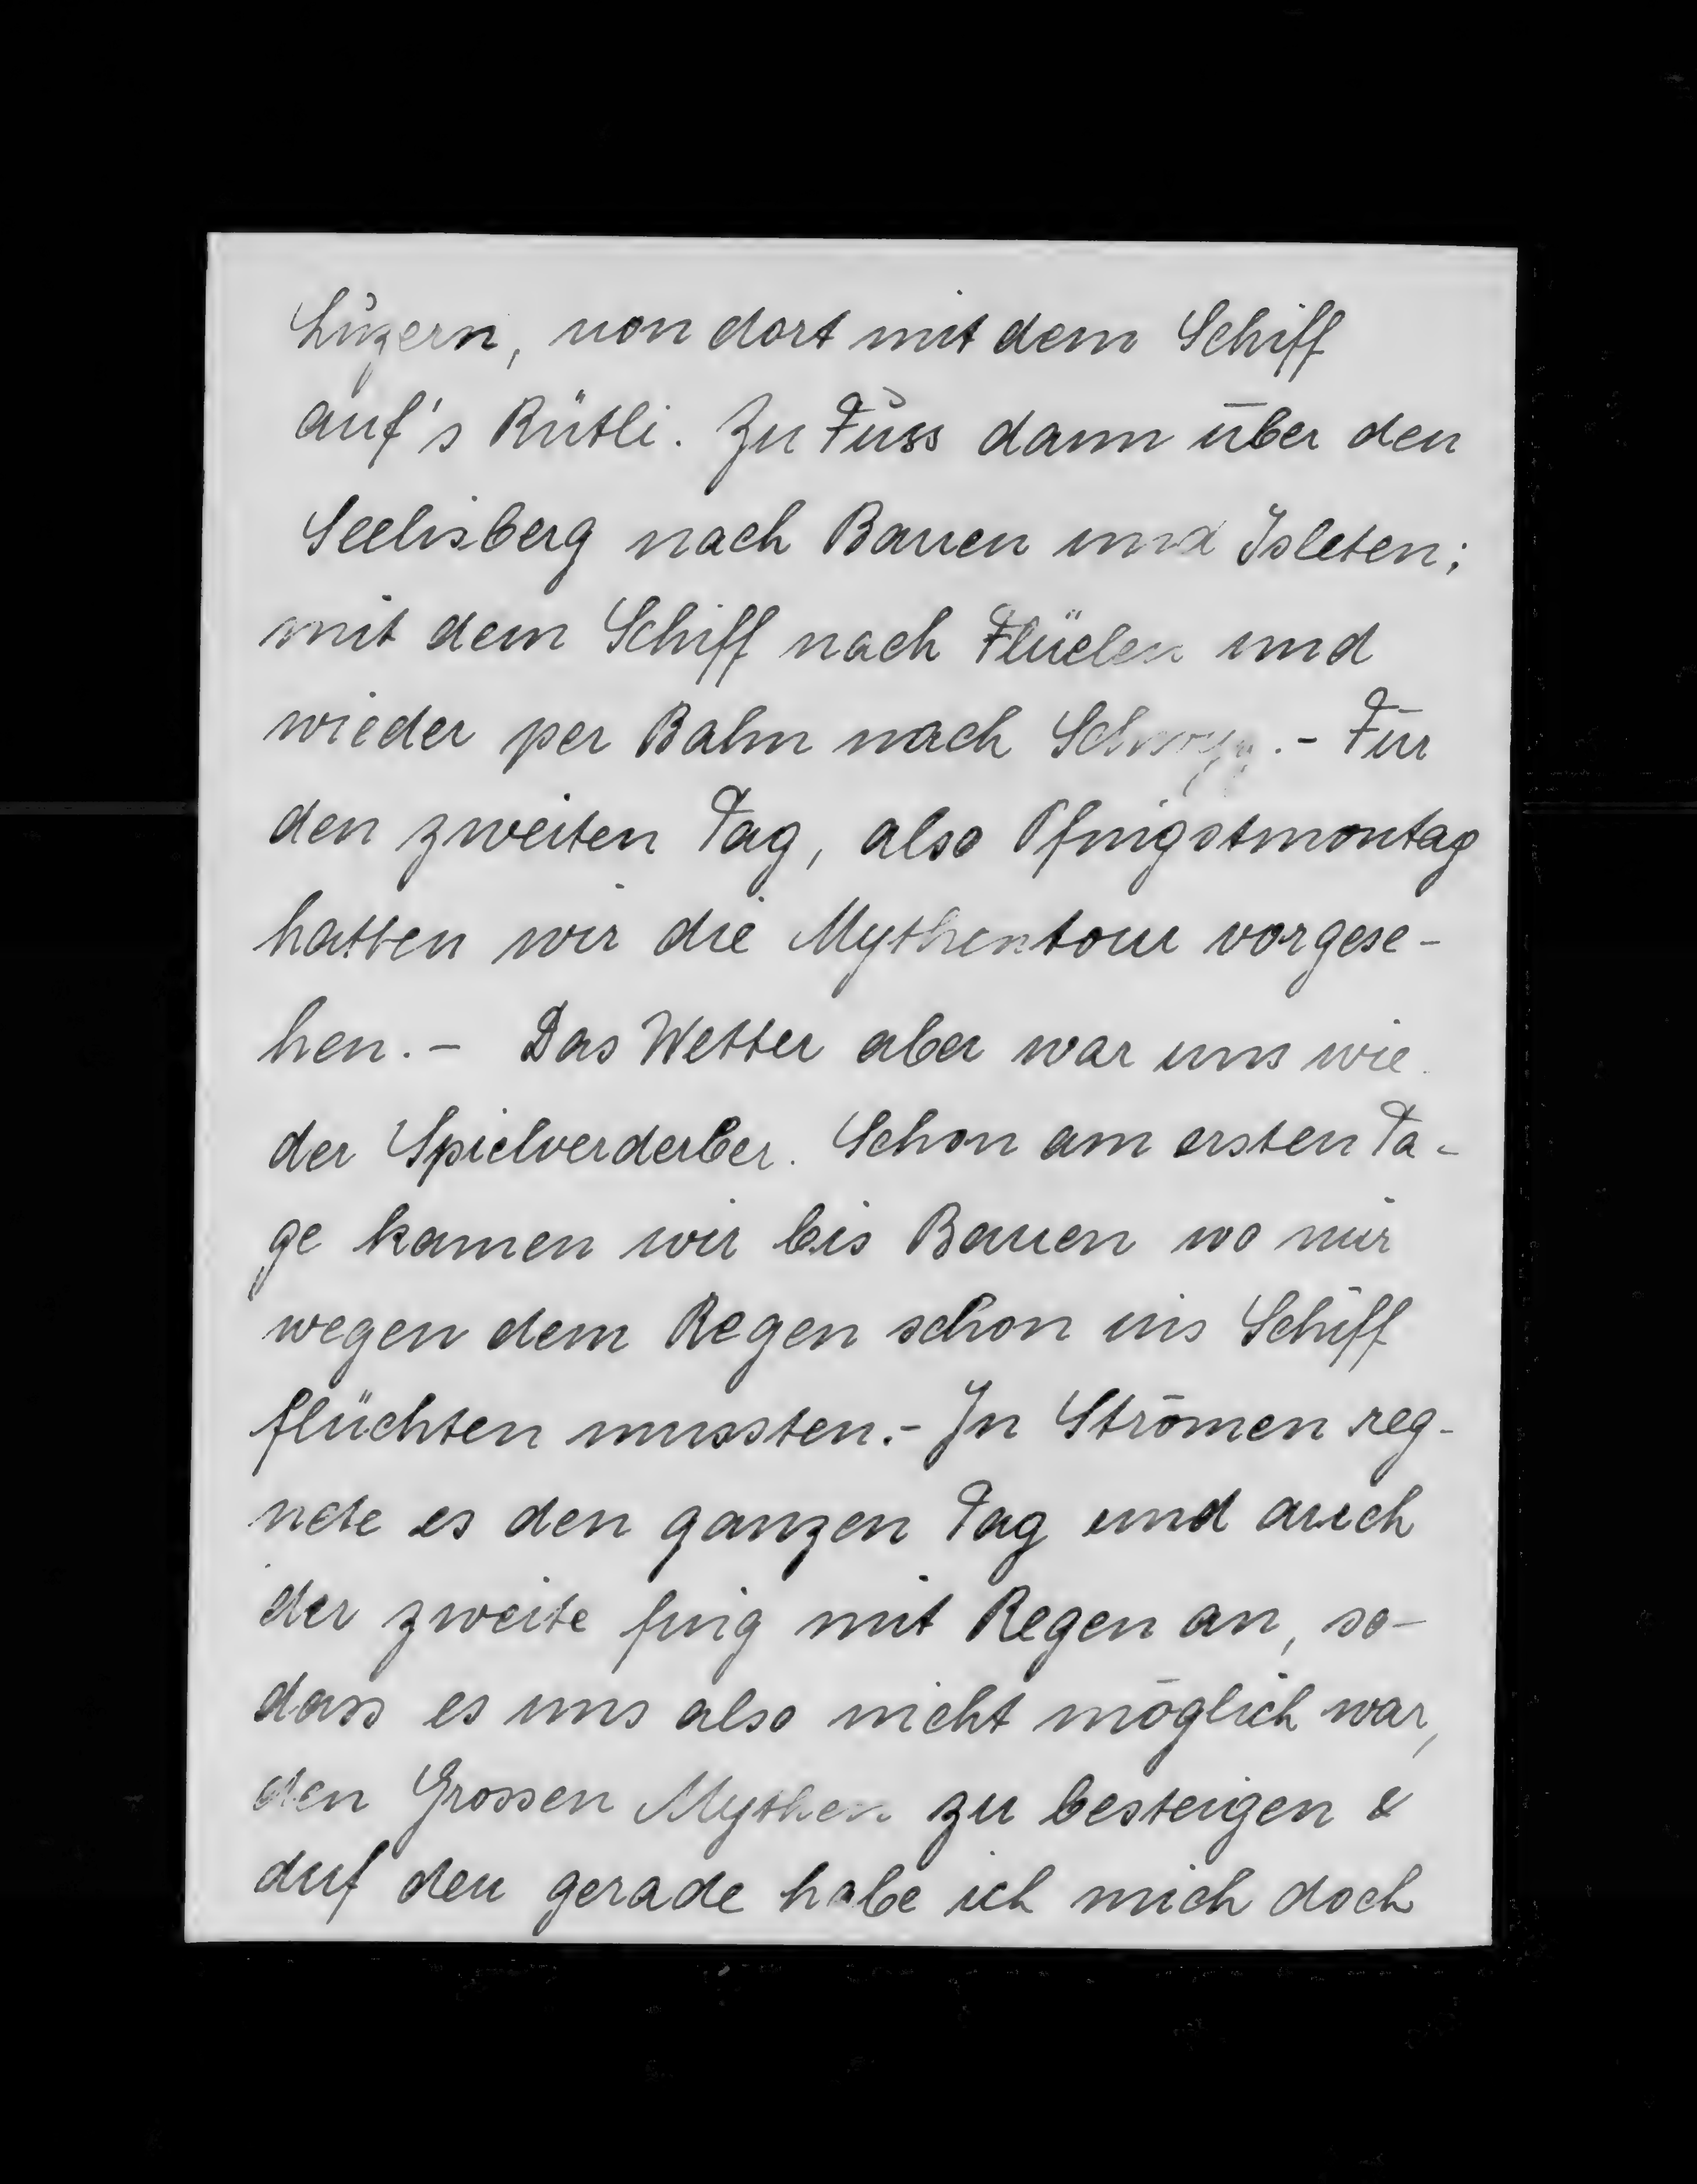 Luzern, von dort mit dem Schiff
auf's Rütli. Zu Fuss dann über den
Seelisberg nach Bauen und Isleten;
mit dem Schiff nach Flüelen und
wieder per Bahn nach Schwyz.- Für
den zweiten Tag, also Pfingstmontag
hatten wir die Mythentour vorgese-
hen.- Das Wetter aber war uns wie
der Spielverderber. Schon am ersten Ta-
ge kamen wir bis Bauen wo wir
wegen dem Regen schon ins Schiff
flüchten mussten.- In Strömen reg-
nete es den ganzen Tag und auch
der zweite fing mit Regen an, so-
dass es uns also nicht möglich war,
den Grossen Mythen zu besteigen &
auf den gerade habe ich mich doch